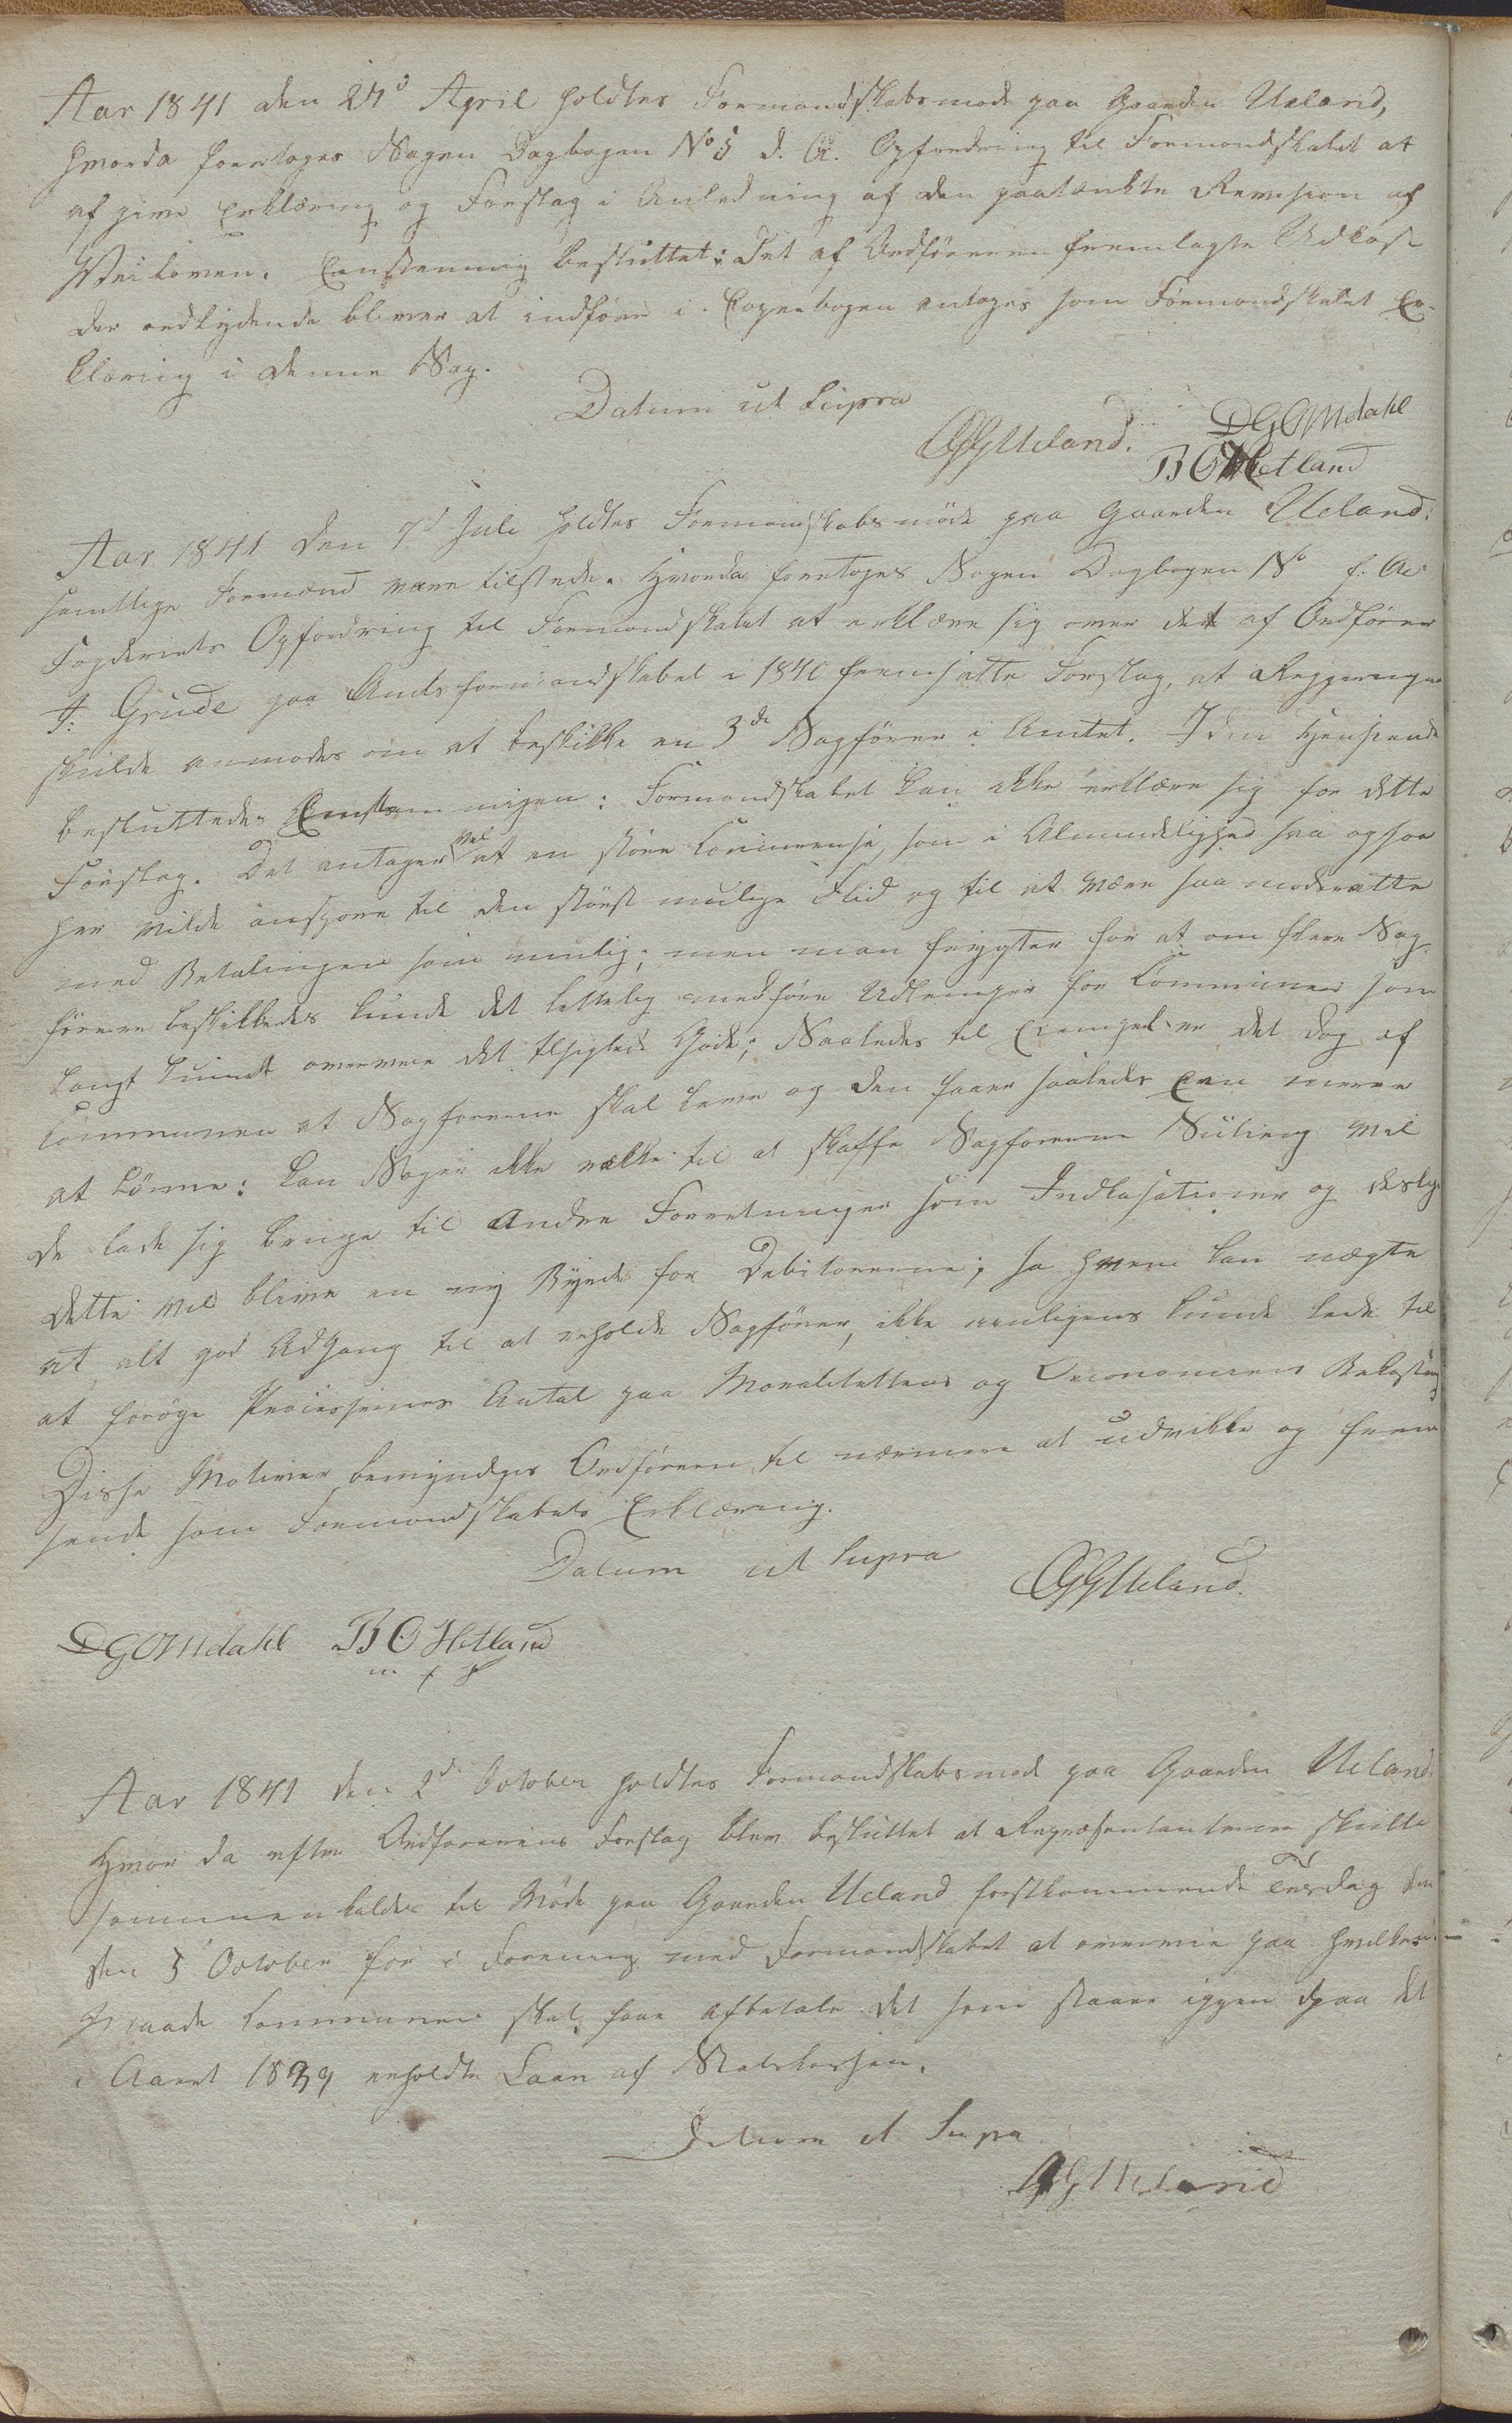 Aar 1841 den 27d April holdtes Formandskabsmøde paa Gaarden Ueland,
hvorda foretoges Sagen Dagbogen No 5 d. A. Opfordring til Formandskabet at
af give Erklæring og Forslag i Anledning af den paatænkte Revision af
Veiloven. Eenstemmig besluttet: Det af Ordføreren fremlagte Udkast
der ordlydende bliver at indføre i Copiebogen antoges som Formandskabet Er-
klæring i denne Sag.
Datum ut supra
OGUeland. DGOmdahl
BOHetland
Aar 1841 den 7d Juli holdtes Formandskabsmøde paa Gaarden Ueland.
samtlige Formænd vare tilstede. Hvorda foretoges Sagen Dagbogen No f. A.
Fogderiets Opfordring til Formandskabet at erklære sig over det af Ordfører
T. Grude paa Amtsformandskabet i 1840 fremsatte Forslag, at Regjeringen
skulde anmodes om at beskikke en 3de Sagfører i Amtet. I den Henseende
besluttedes Eenstemmigen: Formandskabet kan ikke erklære sig for dette
Forslag. Det antager vel at en større Concurence, som i Almindelighed saa ogsaa
her vilde anspore til den størst mulige Flid og til at være saa moderatte
med Betalingen som mulig; men man frygter for at om flere Sag-
førere beskikkedes kunde det lettelig medføre Ulemper for Communen som
langt kunde overveie det tilsigtede Gode; Saaledes til Exempel er det dog af
Communen at Sagførerne skal leve og den faaer saaledes Een mere
at lønne: kan Sager ikke række til at skaffe Sagførerne Næring vil
de lade sig bruge til andre Forretninger som Indkasationer og deslige
dette vil blive en ny Byrde for Debitorerne; ja hvem kan nægte
at alt god Adgang til at erholde Sagfører, ikke rimeligens kunde lede til
at forøge Processernes Antal paa Moralitettens og Oeconomiens Bekostning
Disse Motiver bemyndiges Ordføreren til nærmere at udvikle og frem
sende som Formandskabets Erklæring.
Datum ut supra
OGUeland.
DGOmdahl BOHetland
m f P
Aar 1841 den 2d October holdtes Formandskabsmøde paa Gaarden Ueland.
Hvor da efter Ordførerens Forslag blev besluttet at Repræsentanterne skulle
sammenkaldes til Møde paa Gaarden Ueland førstkommende Tirsdag den
den 5 October for i Forening med Formandskabet at overveie paa hvilken
Maade Communen skal faae afbetale det som staaer igjen paa det
i Aaret 1839 erholdte Laan af Statskassen.
Datum ut Supra
OGUeland